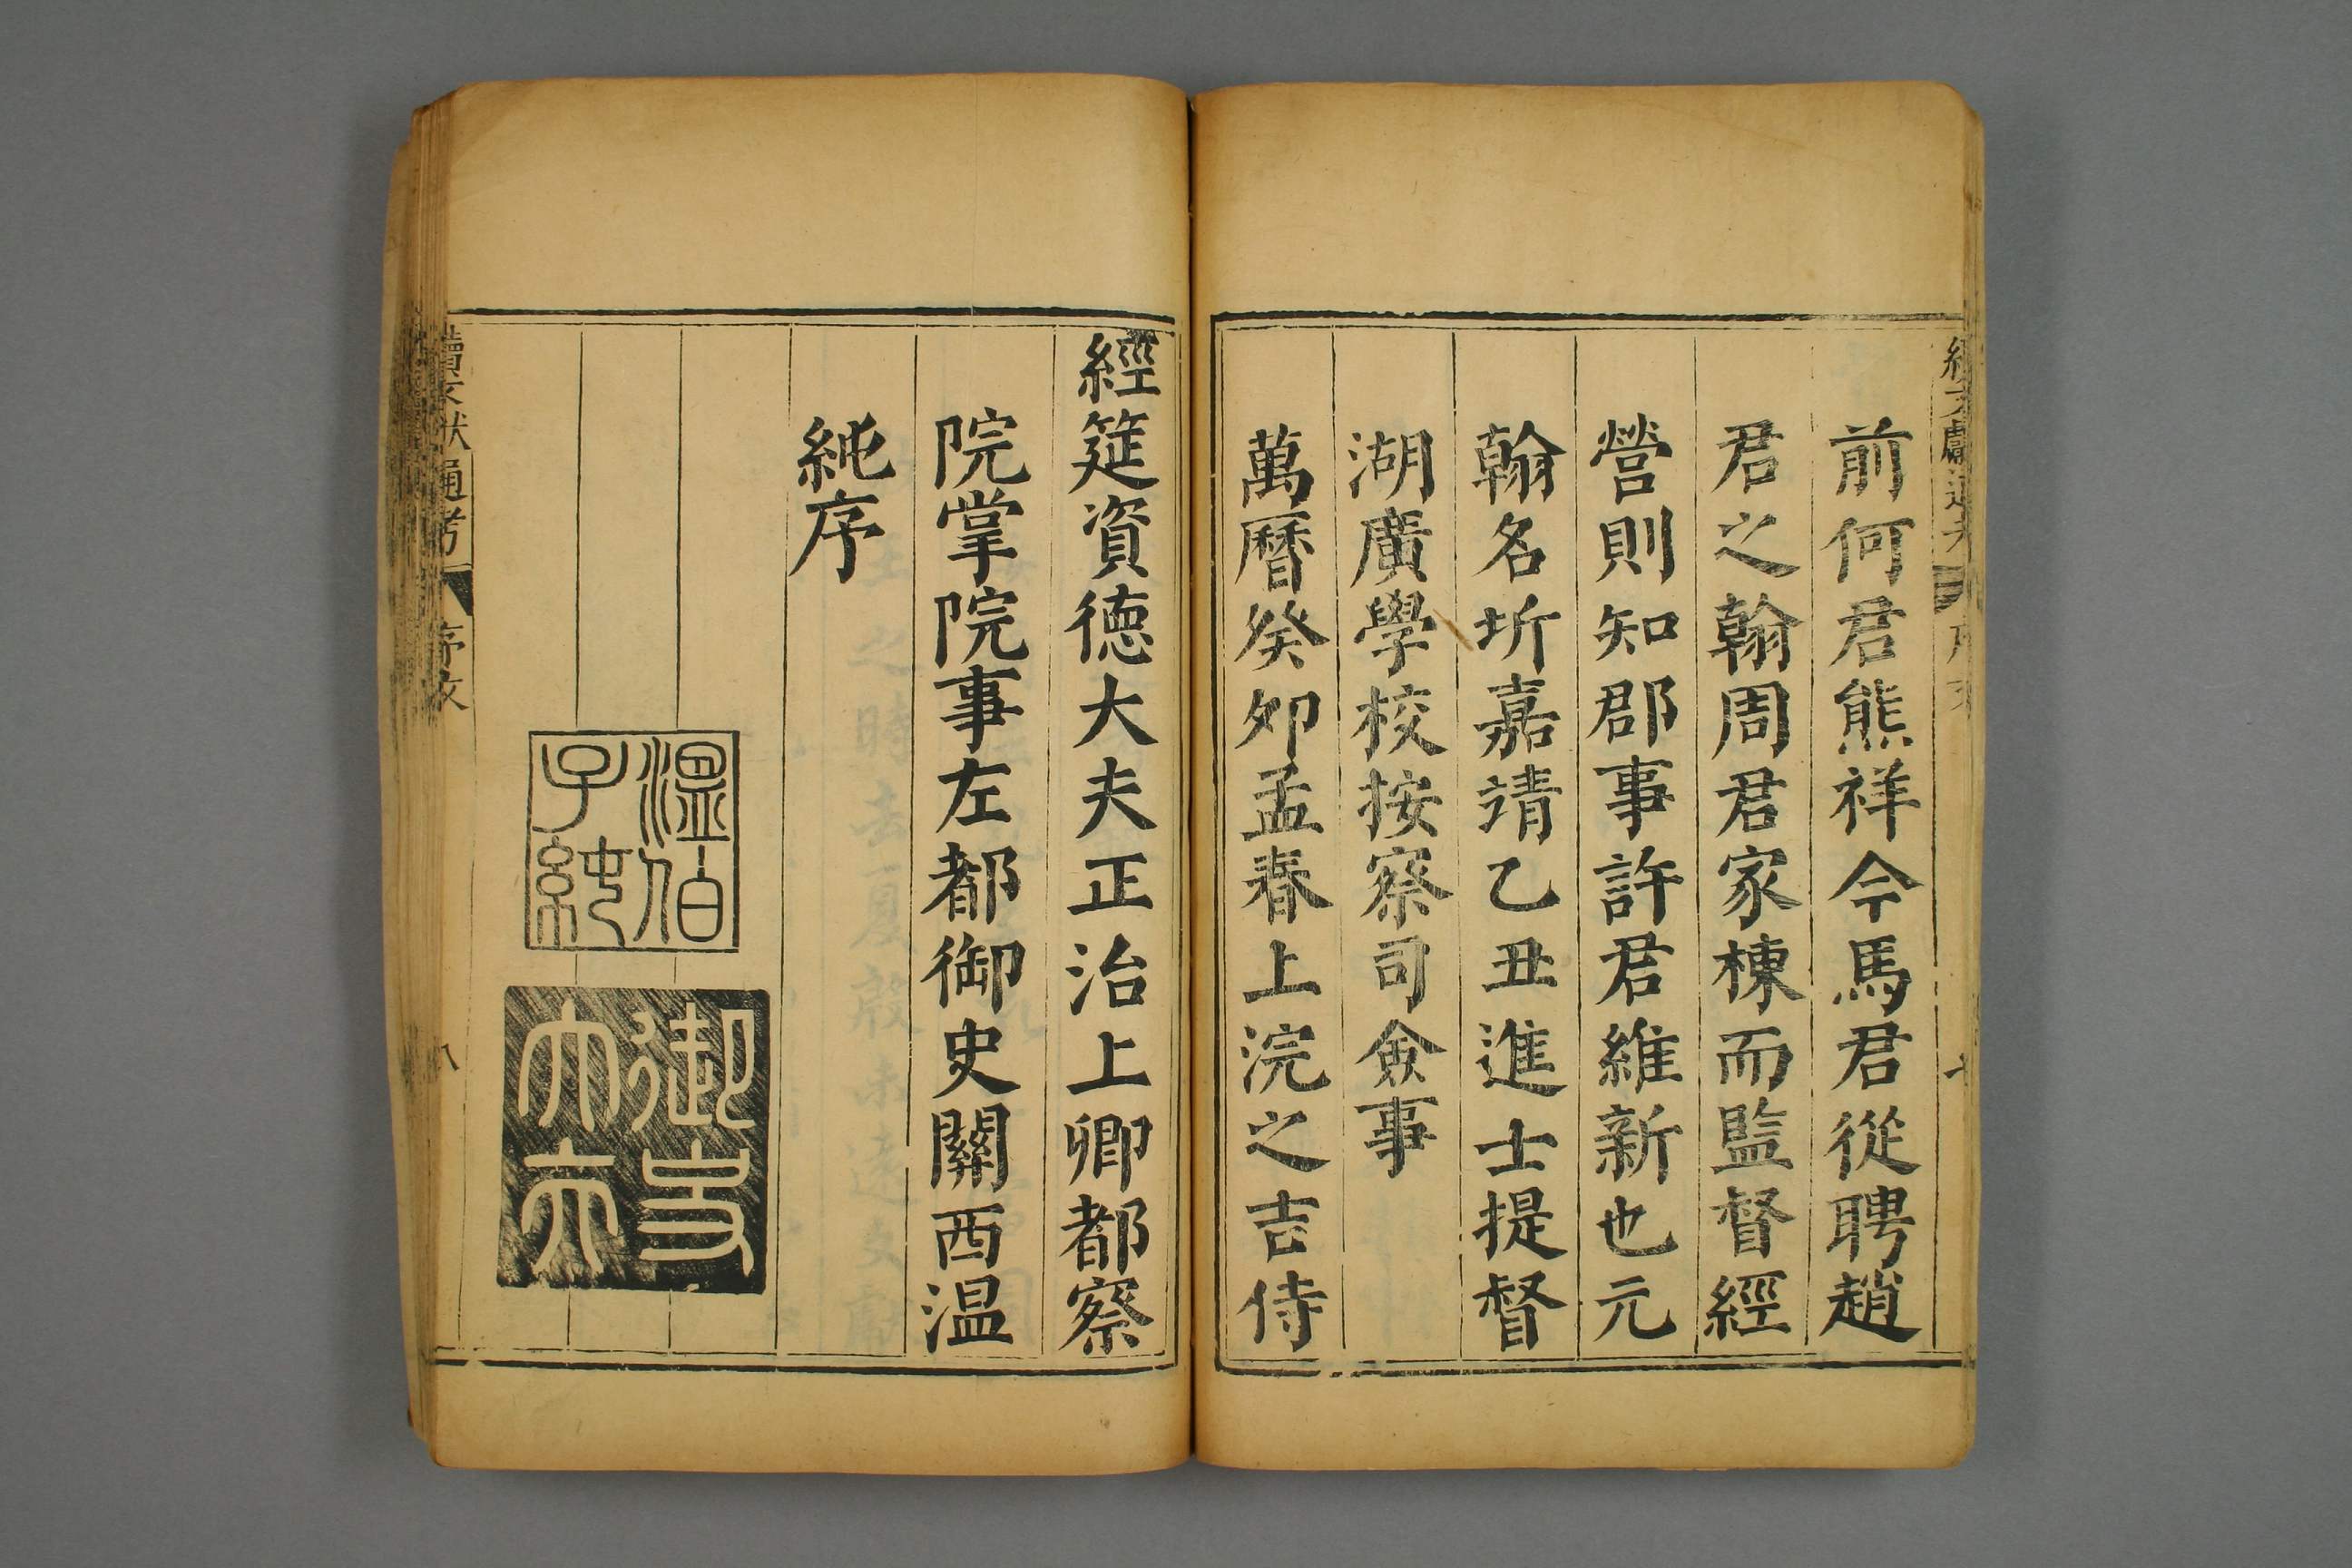 前何君熊祥今馬君從聘趙
君之翰周君家棟而監督經
營則知郡事許君維新也元
翰名圻嘉靖乙丑進士提督
湖廣學校按察司僉事
萬曆癸夘孟春上浣之吉侍
經筵資德大夫正治上卿都察
院掌院事左都御史關西温
純序
溫伯子純
御史大夫
續文獻通考
序文
八
續文獻通考
序文
七